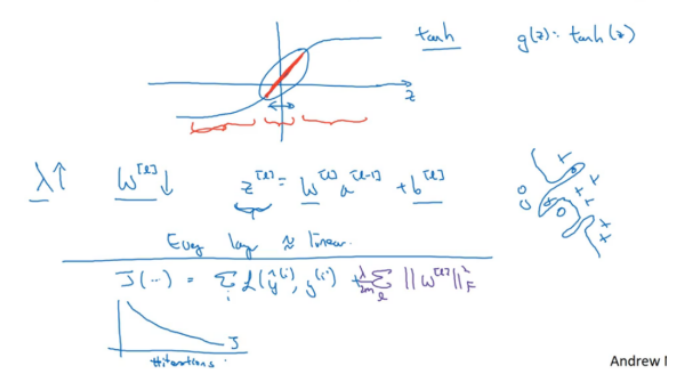 tanh g(z) = tanh(z)
z
λ↑ W^[l]↓ z^[l] = W^[l] a^[l-1] + b^[l]
Every layer ≈ linear.
J(...) = Σ_i L(ŷ^(i), y^(i)) + λ/2m Σ_l ||W^[l]||²_F
J
#iterations
Andrew